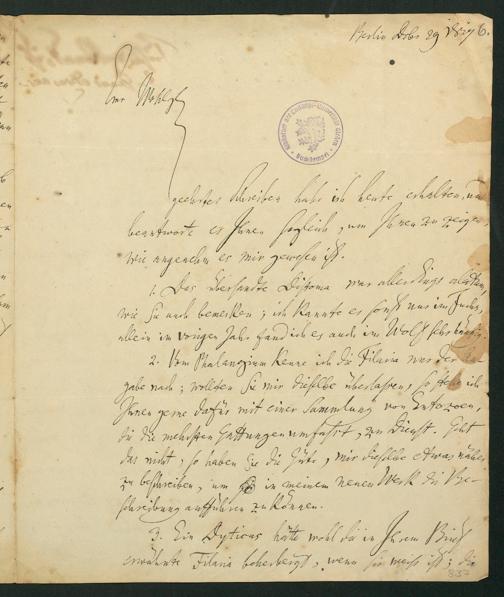 Berlin Octbr 29 1816.
Ew Wohlgb
geehrtes Schreiben habe ich heute erhalten, und
beantworte es Ihnen sogleich, um Ihnen zu zeigen,
wie angenehm es mir gewesen ist.
1. Das übersandte Distoma war allerdings alatum,
wie Sie auch bemerken; ich kannte es sonst nur im Fuchs,
allein im vorigen Jahr fand ich es auch im Wolf sehr häufig.
2. Vom Phalangium kenne ich die Filaria nur der An-
gabe nach; wollten Sie mir dieselbe überlassen, so stehe ich
Ihnen gerne dafür mit einer Sammlung von Entozoen,
die die mehrsten Gattungen umfaßt, zu Dienst. Geht
das nicht, so haben Sie die Güte, mir dieselbe etwas näher
zu beschreiben, um in meinem neuen Werk die Be-
schreibung aufführen zu können.
3. Ein Dyticus hätte wohl die in Ihrem Brief
erwähnte Filaria beherbergt, wenn sie weiß ist; die